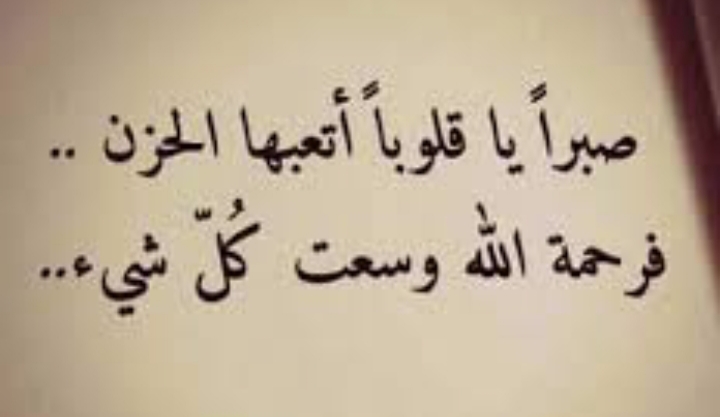 صبراً يا قلوباً أتعبها الحزن ..
فرحمة الله وسعت كُلّ شيء..